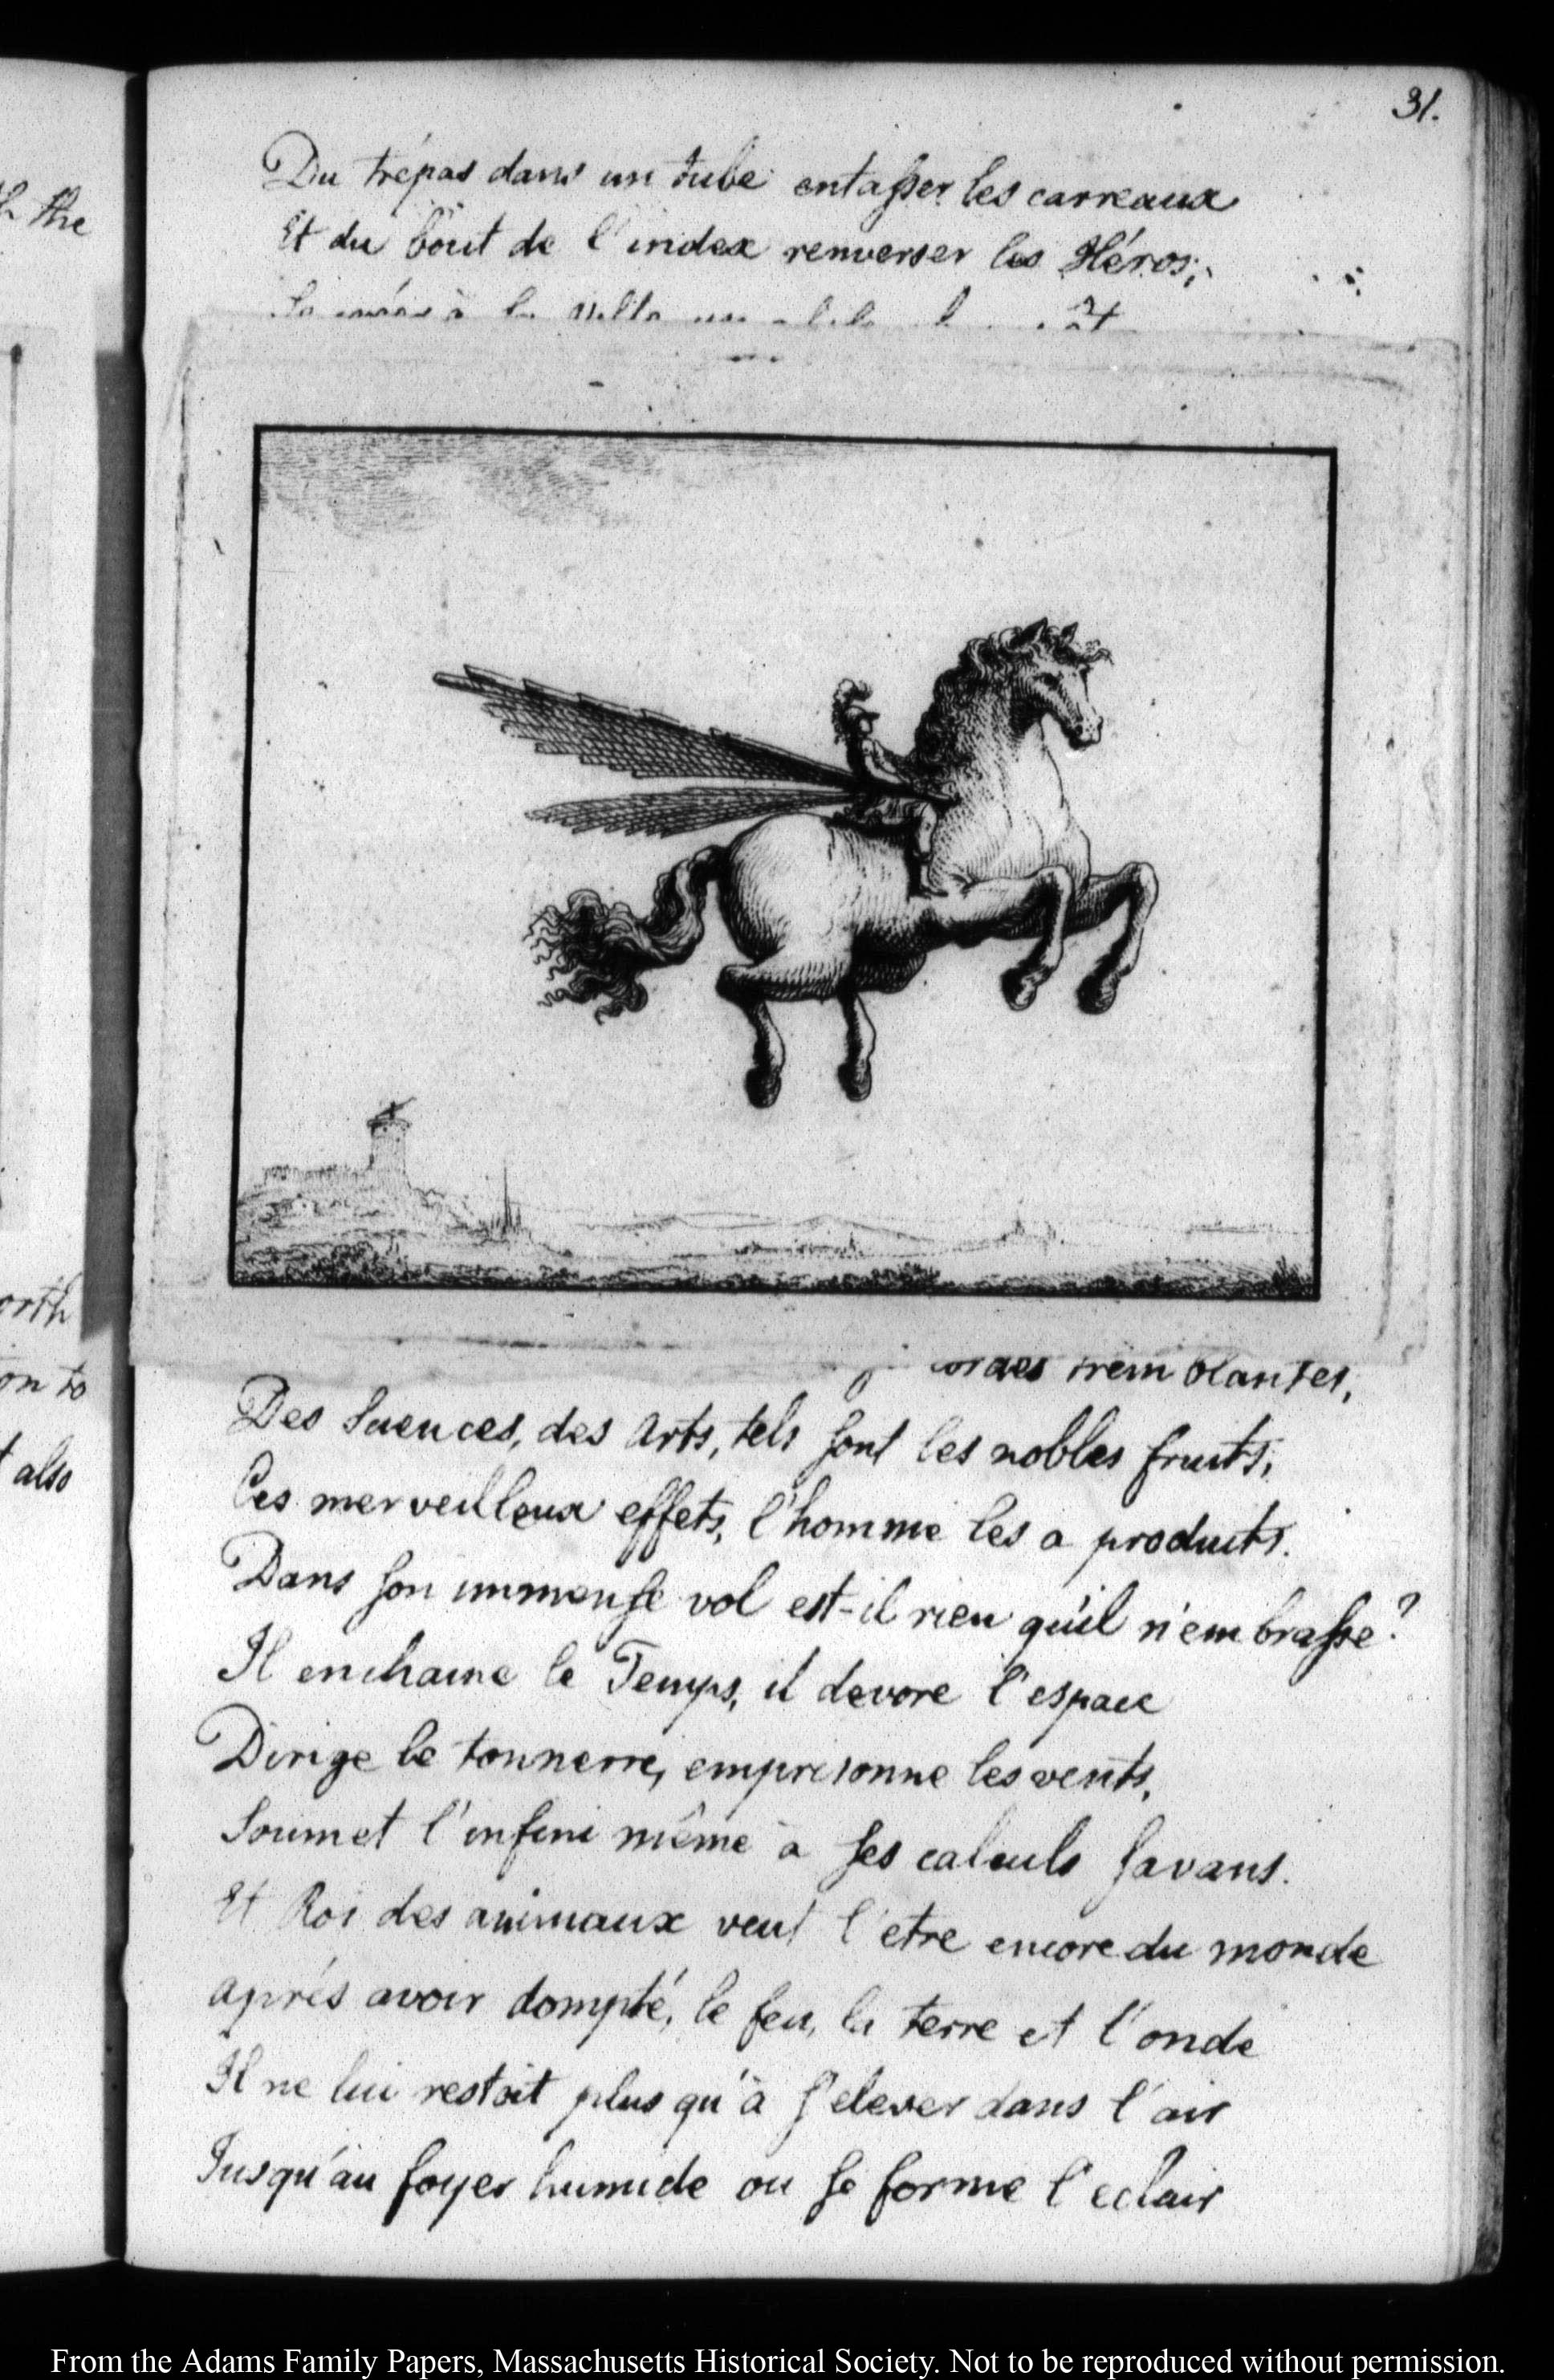 31.
h the
Du trépas dans un tube entasser les carreaux
Et du bout de l'index renverser les Héros;
à la
orth
on to
t also
tremblantes,
Des Sciences, des Arts, tels sont les nobles fruits;
Ces merveilleux effets, l'homme les a produits.
Dans son immense vol est-il rien qu'il n'embrasse?
Il enchaine le Temps, il devore l'espace
Dirige le tonnerre, emprisonne les vents,
Soumet l'infini même à ses calculs savans.
Et Roi des animaux veut l'etre encore du monde
Aprés avoir dompté, le feu, la terre et l'onde
Il ne lui restoit plus qu'à s'elever dans l'air
Jusqu'au foyer humide ou se forme l'eclair
From the Adams Family Papers, Massachusetts Historical Society. Not to be reproduced without permission.